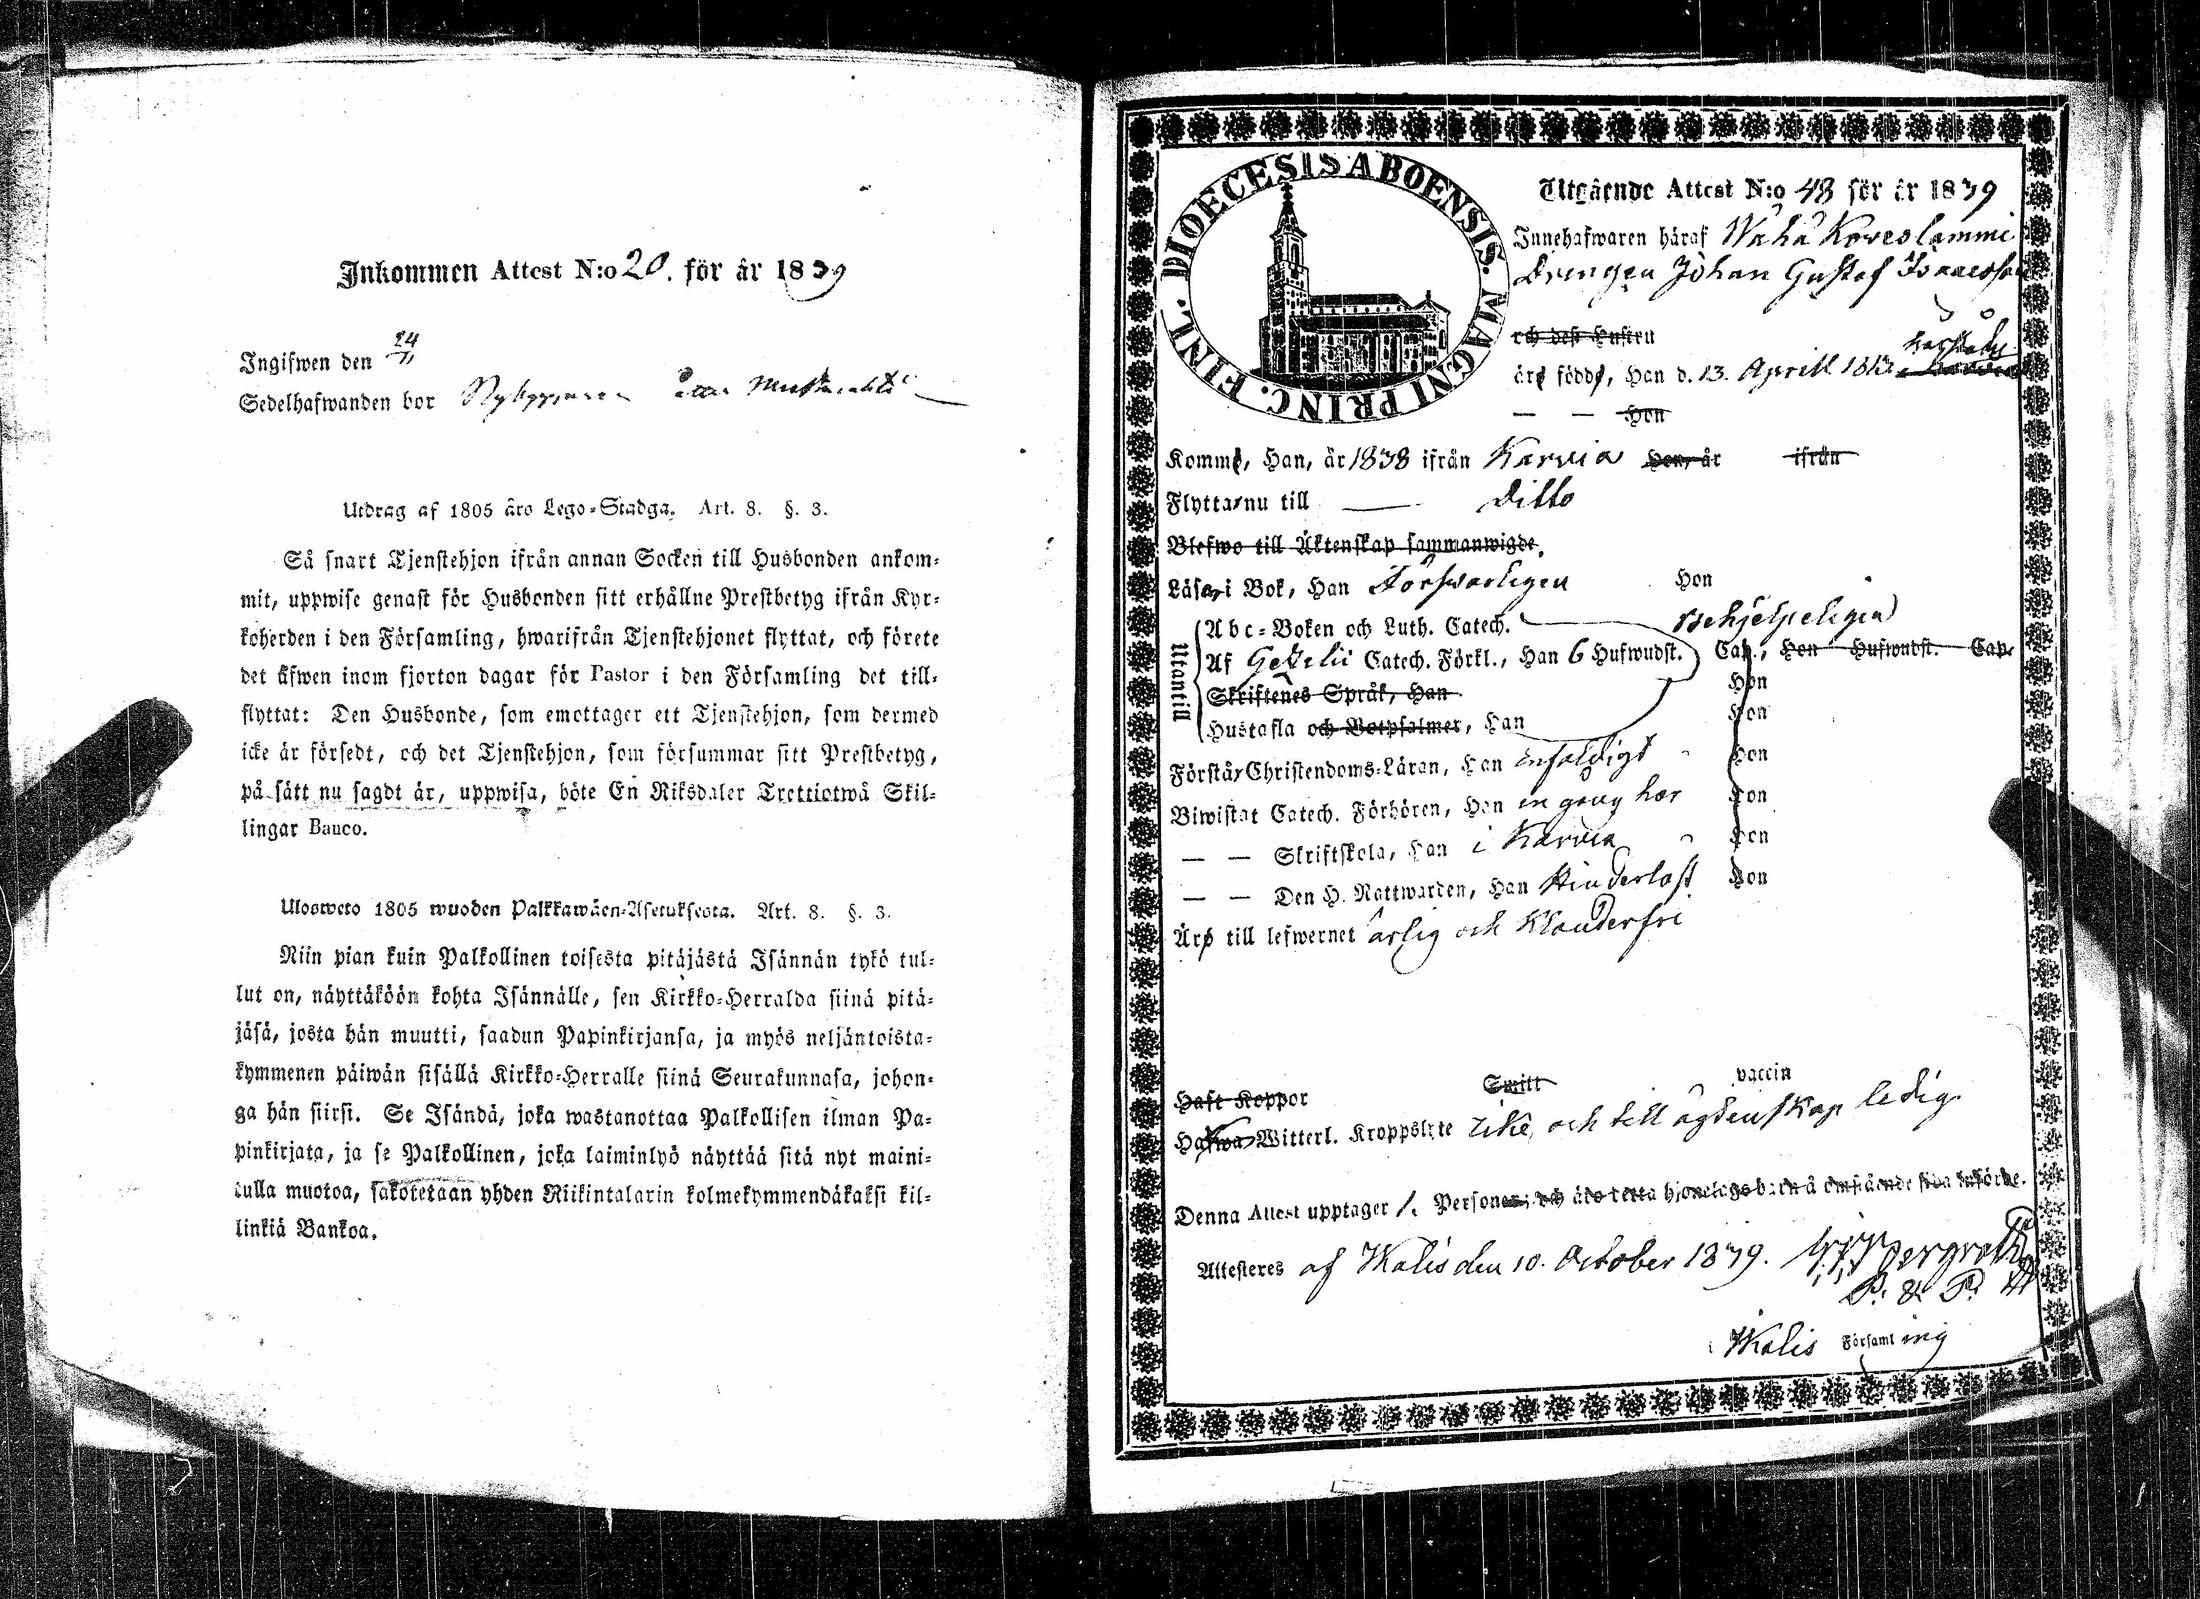 Inkommen Attest N:o 20. för år 1839
Ingifwen den 24/11
Sedelhafwanden bor
Utdrag af 1805 års Lego-Stadga. Art. 8. §. 3.
Så snart Tjenstehjon ifrån annan Socken till Husbonden ankom-
mit, uppwise genast för Husbonden sitt erhållne Prestbetyg ifrån Kyr-
koherden i den Församling, hwarifrån Tjenstehjonet flyttat, och förete
det äfwen inom fjorton dagar för Pastor i den Församling det till-
flyttat: Den Husbonde, som emottager ett Tjenstehjon, som dermed
icke är försedt, och det Tjenstehjon, som försummar sitt Prestbetyg,
på sätt nu sagdt är, uppwisa, böte En Riksdaler Trettiotwå Skil-
lingar Banco.
Ulosweto 1805 wuoden Palkkawäen-Asetuksesta. Art. 8. §. 3.
Niin pian kuin Palkollinen toisesta pitäjästä Isännän tykö tul-
lut on, näyttäköön kohta Isännälle, sen Kirkko-Herralda siinä pitä-
jäsä, josta hän muutti, saadun Papinkirjansa, ja myös neljäntoista-
kymmenen päiwän sisällä Kirkko-Herralle siinä Seurakunnasa, johon-
ga hän siirsi. Se Isändä, joka wastanottaa Palkollisen ilman Pa-
pinkirjata, ja se Palkollinen, joka laiminlyö näyttää sitä nyt maini-
tulla muotoa, sakotetaan yhden Riikintalarin kolmekymmendäkaksi kil-
linkiä Bankoa.
DIOECESIS ABOENSIS. MAGNI PRINC. FINL.
Utgående Attest N:o 48 för år 1839
Innehafwaren häraf Wähä Koveslammi
Drengen Johan Gustaf Isaacsson
och dess Hustru
äro födde, Han d. 13. Aprill 1813
— — Hon
Komme, Han, år 1838 ifrån Karvia Hon, år ifrån
Flytta nu till — Ditto
Blefwo till Äktenskap sammanwigde.
Läsa i Bok, Han Försvarligen Hon
Utantill
Abc-Boken och Luth. Catech. behjelpeligen
Af Gezelii Catech. Förkl., Han 6 Hufwudst. Cap., Hon Hufwudst. Cap.
Skriftenes Språk, Han Hon
Hustafla och Botpsalmer, Han Hon
Förstår Christendoms-Läran, Han enfaldigt Hon
Biwistat Catech. Förhören, Han en gång här Hon
— — Skriftskola, Han i Karvia Hon
— — Den H. Nattwarden, Han Hinderlöst Hon
Äro till lefwernet ärlig och Klanderfri
Haft Koppor Smitt vaccin
Hafwa Witterl. Kroppslyte icke, och till ägtenskap ledig
Denna Attest upptager 1. Personer, och äro detta hjonelags barn å omstående sida införde.
Attesteres af Kalis den 10. October 1839.
Kalis Församling